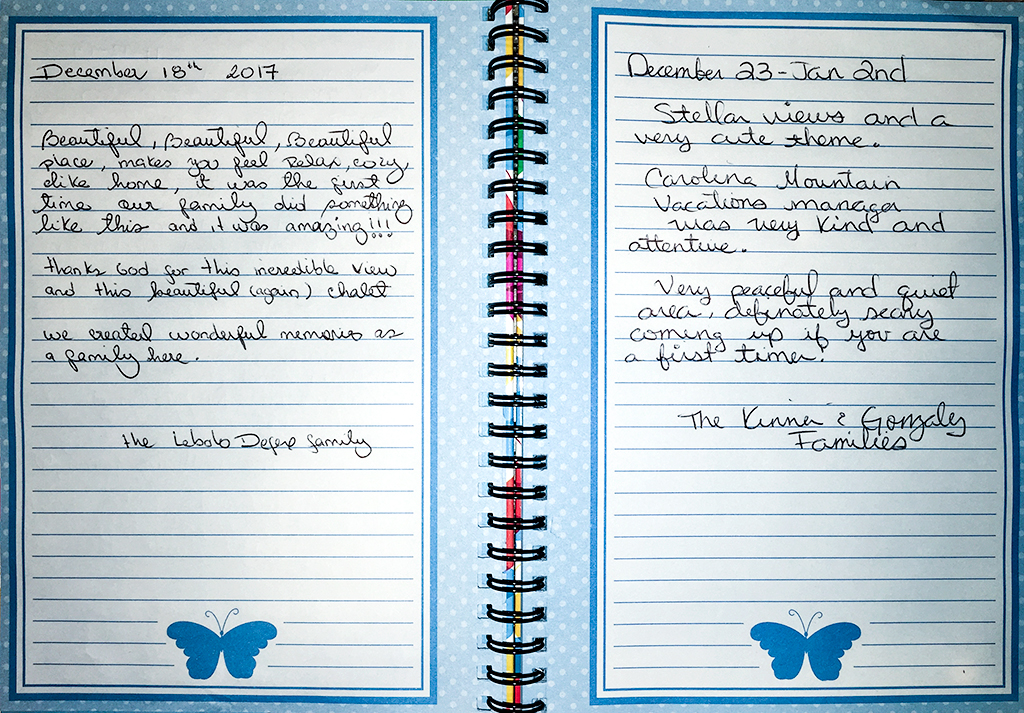 December 18th 2017
Beautiful, Beautiful, Beautiful
place, makes you feel Relax, cozy,
alike home, it was the first
time our family did something
like this and it was amazing!!!
thanks God for this incredible view
and this beautiful (again) chalet
we created wonderful memories as
a family here.
the Lebolo family
December 23 - Jan 2nd
Stellar views and a
very cute theme.
Carolina Mountain
Vacations manager
was very kind and
attentive.
Very peaceful and quiet
area, definately scary
coming up if you are
a first timer!
The & Gonzalez
Families